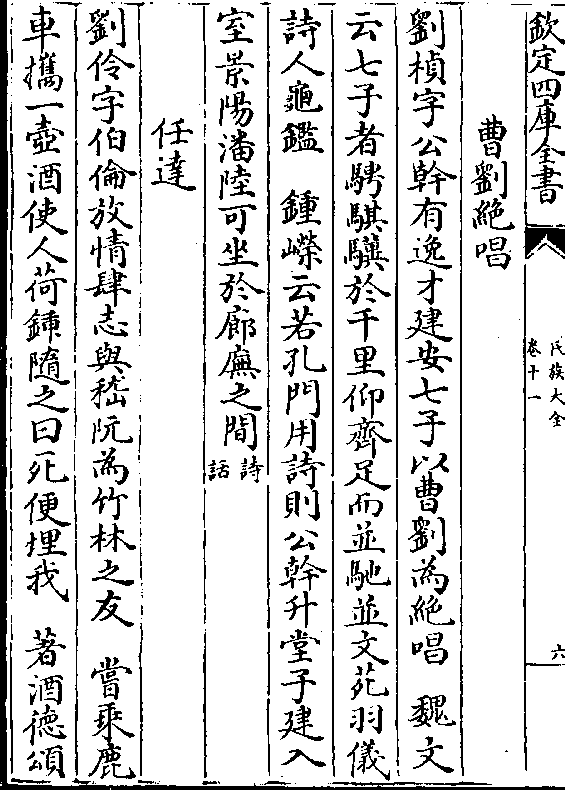 欽定四庫全書
氏族大全
卷十一
六
曹劉絶唱
劉楨字公幹有逸才建安七子以曹劉為絶唱　魏文
云七子者騁騏驥於千里仰齊足而並馳並文苑羽儀
詩人龜鑑　鍾嶸云若孔門用詩則公幹升堂子建入
室景陽潘陸可坐於廊廡之間詩話
任達
劉伶字伯倫放情肆志與嵇阮為竹林之友　嘗乘鹿
車攜一壺酒使人荷鍤隨之曰死便埋我　著酒德頌